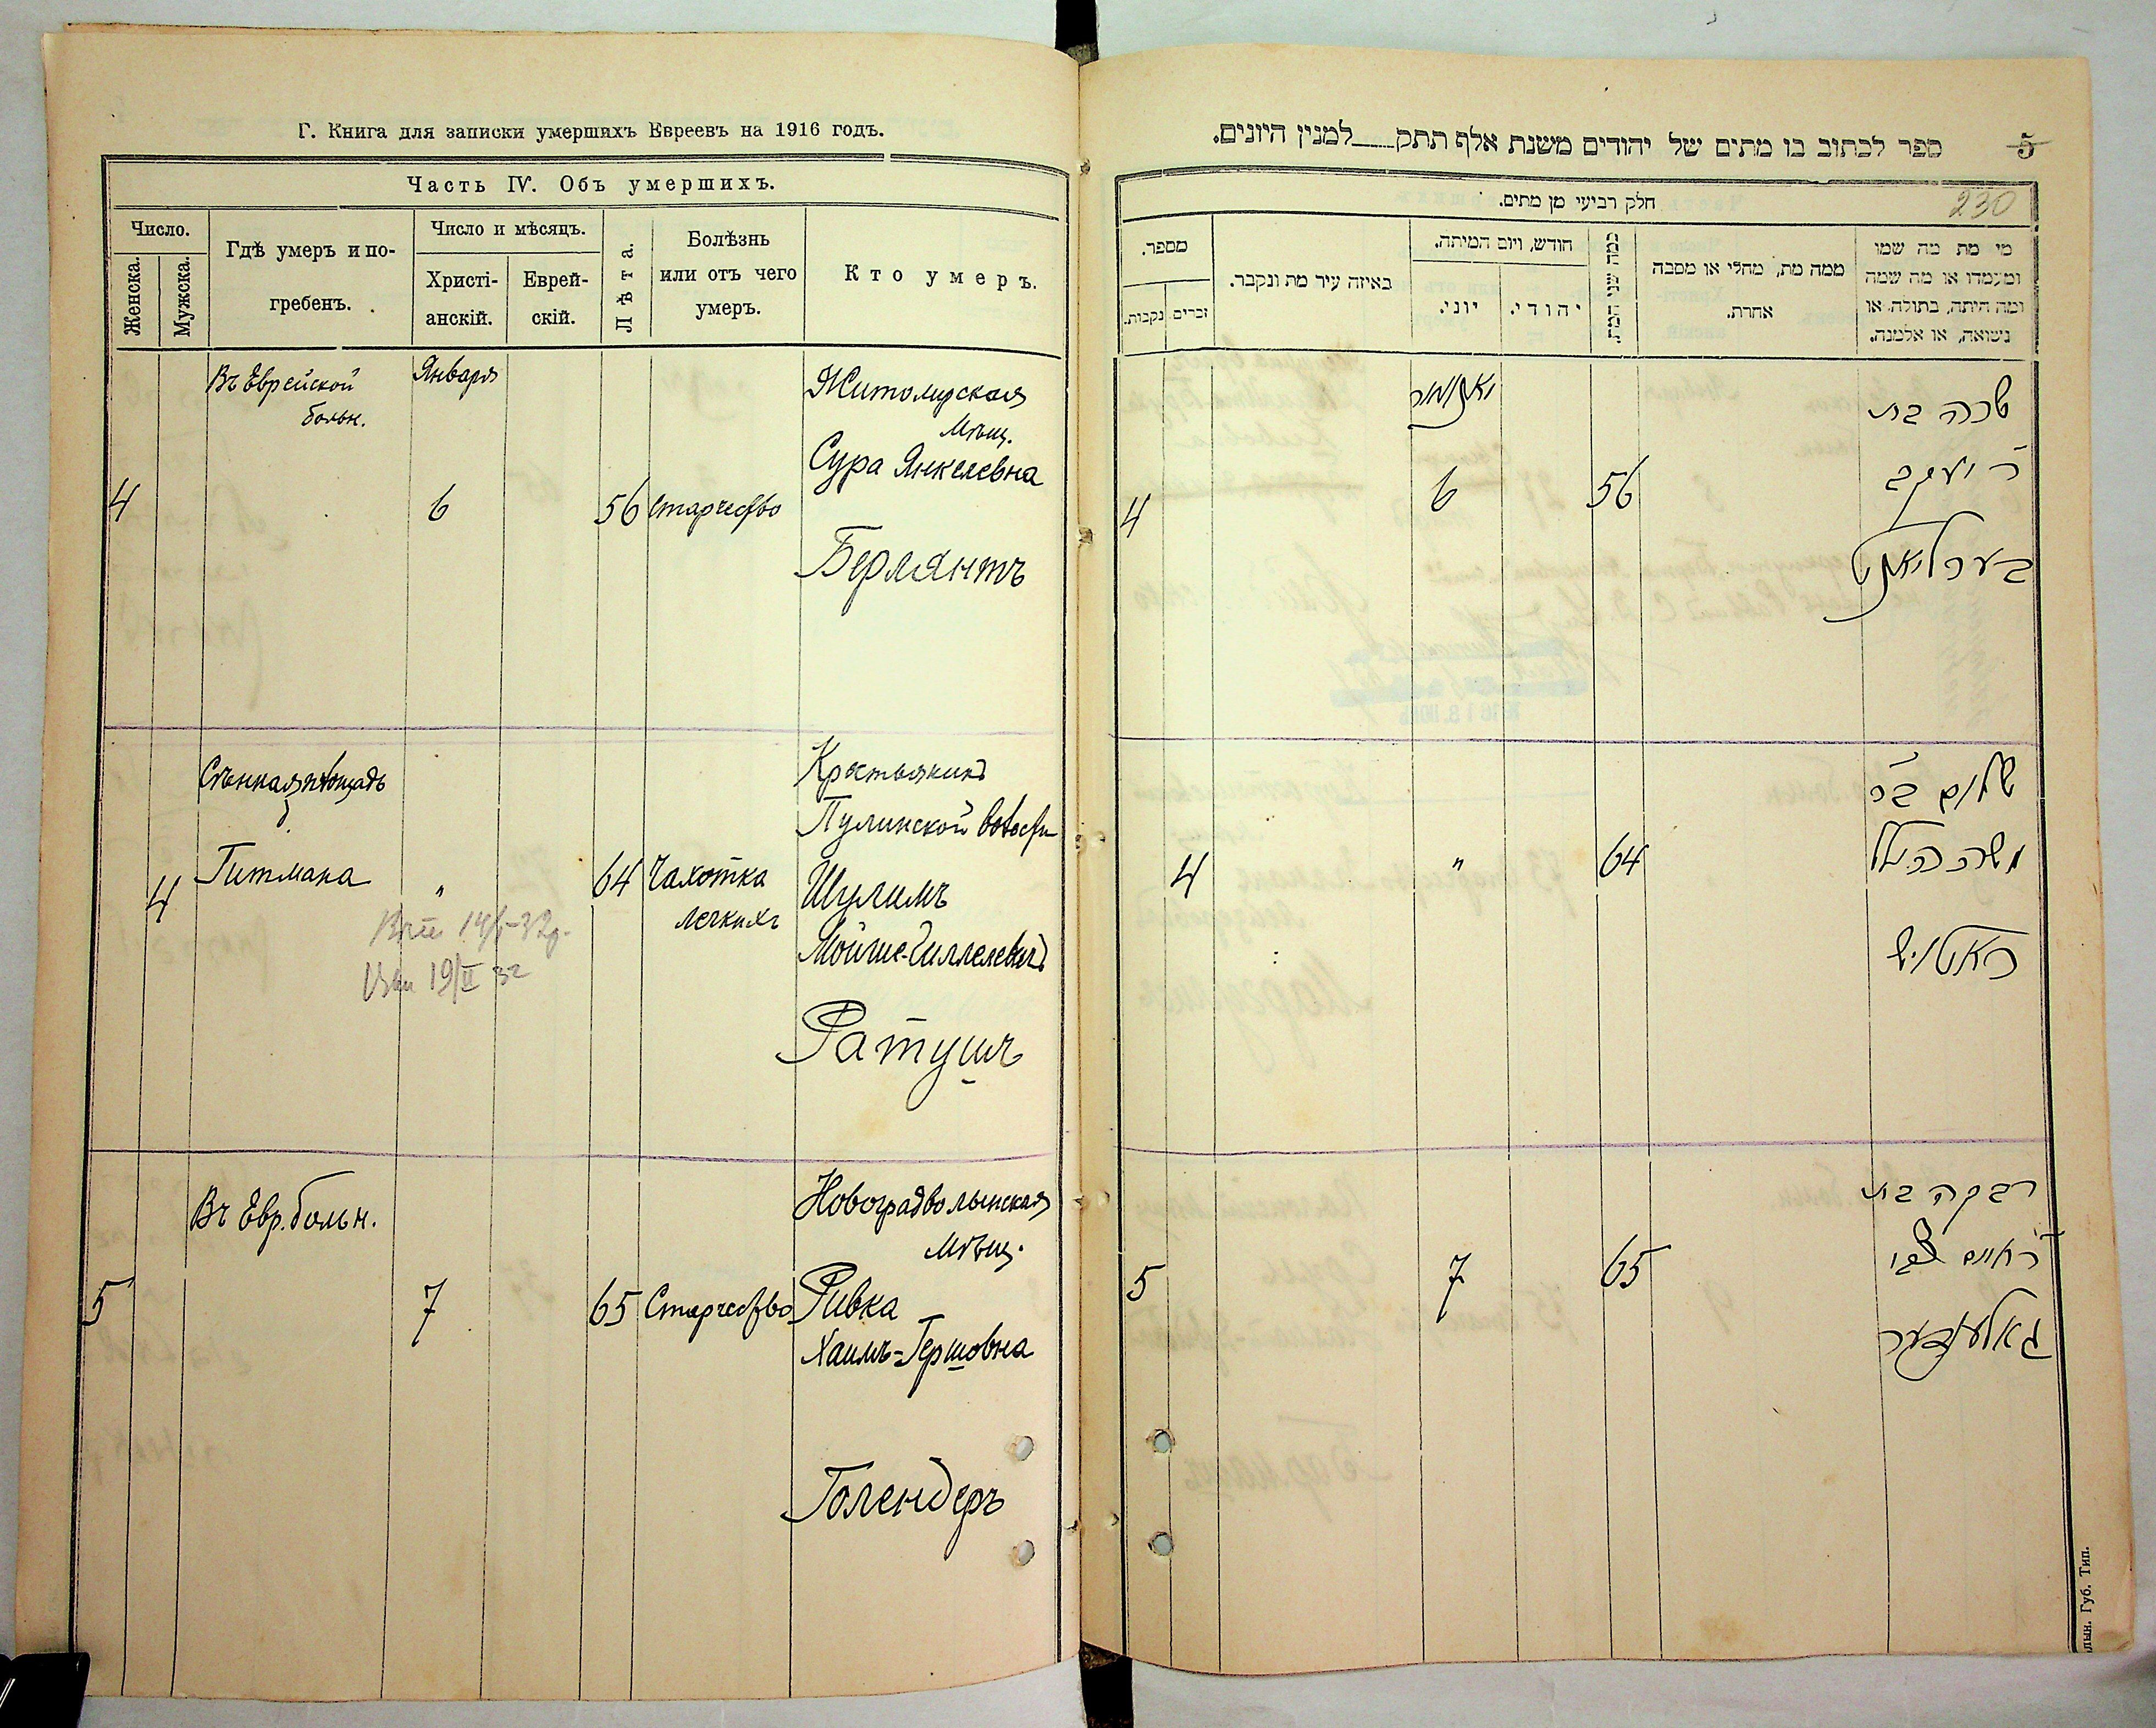 Г. Книга для записки умершихъ Евреевъ на 1916 годъ.
Часть IV. Объ умершихъ.
Число.
Женска.
Мужска.
Гдѣ умеръ и по-
гребенъ.
Число и мѣсяцъ.
Христі-
анскій.
Еврей-
скій.
Лѣта.
Болѣзнь
или отъ чего
умеръ.
Кто умеръ.
Въ Еврейской
больн.
Января
Житомирская
мѣщ.
Сура Янкелевна
4
6
56
старчество
Берлянтъ
Сѣнная площадь
Гитмана
4
"
64
Чахотка
легкихъ
Крестьянинъ
Пулинской волости
Шулимъ
Мойше-Гиллелевичъ
Ратушъ
19/II 32
Въ Евр. больн.
5
7
65
Старчество
Новоградволынская
мѣщ.
Ривка
Хаимъ-Гершовна
Голендеръ
ספר לכתוב בו מתים של יהודים משנת אלף תתק למנין היונים.
5
230
חלק רביעי מן מתים.
מספר.
זכרים
נקבות.
באיזה עיר מת ונקבר.
חודש, ויום המיתה.
יוני.
יהודי.
כמה שני המת.
ממה מת, מחלי או מסבה
אחרת.
מי מת מה שמו
ומעמדו או מה שמה
ומה היתה, בתולה או
נשואה, או אלמנה.
יאנואר
שרה בת
ר' יעקב
בערליאנט
4
6
56
שלום ב"ר
משה הילל
ראטוש
4
"
64
רבקה בת
ר' חיים צבי
גאלענדער
5
7
65
лын. Губ. Тип.